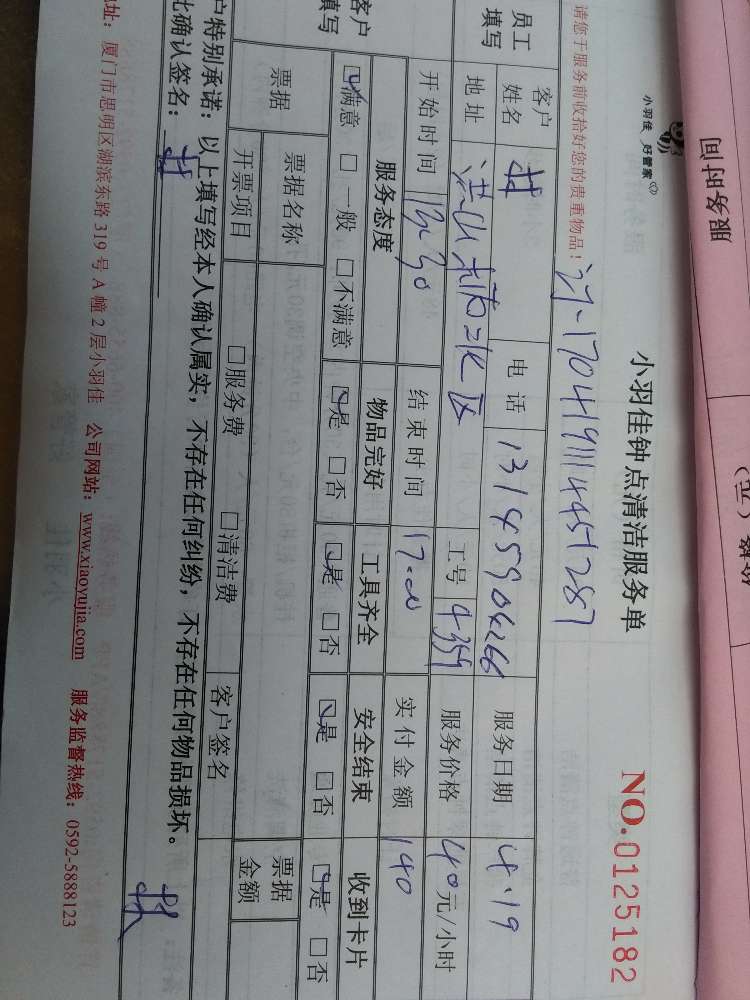 服务时间
小羽佳 好管家
小羽佳钟点清洁服务单
NO.0125182
请您于服务前收拾好您的贵重物品!
员工填写
客户姓名
电话
服务日期 4.19
地址
工号
服务价格 40元/小时
开始时间 13:30
结束时间 17:00
实付金额 140
客户填写
服务态度 物品完好 工具齐全 安全结束 收到卡片
☑满意 □一般 □不满意 ☑是 □否 ☑是 □否 ☑是 □否 ☑是 □否
票据
票据名称
票据金额
开票项目 □服务费 □清洁费 客户签名
户特别承诺:以上填写经本人确认属实,不存在任何纠纷,不存在任何物品损坏。
此确认签名:
地址:厦门市思明区湖滨东路319号A幢2层小羽佳 公司网站:www.xiaoyujia.com 服务监督热线:0592-5888123